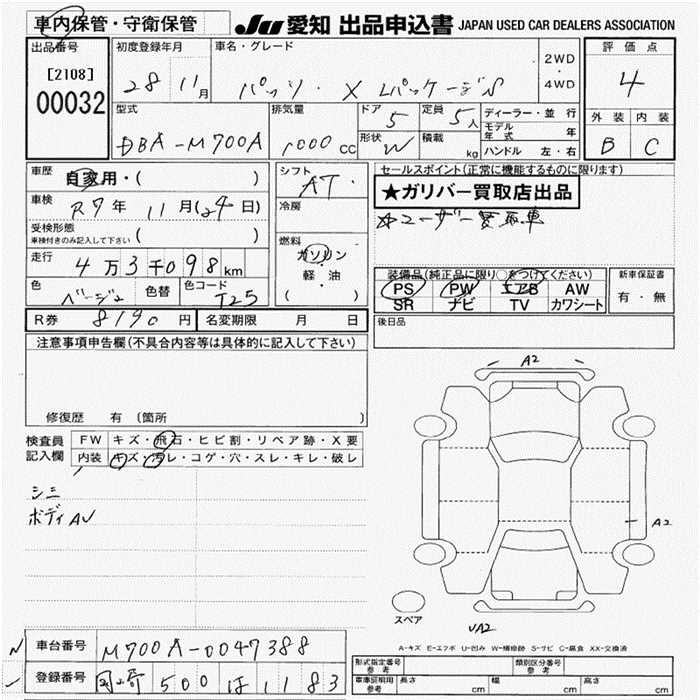 車内保管・守衛保管
JU 愛知 出品申込書 JAPAN USED CAR DEALERS ASSOCIATION
出品番号
[2108]
00032
初度登録年月
28 11月
車名・グレード
パッソ・X Lパッケージ S
2WD
4WD
評価点
4
型式
DBA-M700A
排気量
1000 cc
ドア 5
形状 W
定員 5人
積載 kg
ディーラー・並行
モデル年式 年
ハンドル 左・右
外装 内装
B C
車歴 自家用・( )
車検 R7年 11月(24日)
受検形態
車検付きのみ記入して下さい ( )
走行 4万3千098km
色 ベージュ 色替 色コード T25
シフト
AT・
冷房
燃料
ガソリン
軽・油
( )
セールスポイント(正常に機能するものに限ります)
★ガリバー買取店出品
☆ユーザー買取車
装備品(純正品に限り○をつけてください)
PS PW エアB AW
SR ナビ TV カワシート
新車保証書
有・無
R券 8190円 名変期限 月 日
後日品
注意事項申告欄(不具合内容等は具体的に記入して下さい)
修復歴 有 〔箇所
検査員記入欄
FW キズ・飛石・ヒビ割・リペア跡・X要
内装 キズ・汚レ・コゲ・穴・スレ・キレ・破レ
シミ
ボディAU
A2
A2
スペア
UA2
A-キズ E-エクボ U-凹み W-補修跡 S-サビ C-腐食 XX-交換済
車台番号 M700A-0047388
登録番号 岡崎 500 ほ 1183
形式指定番号 参考
類別区分番号 参考
車庫証明用 参考 長さ cm 幅 cm 高さ cm